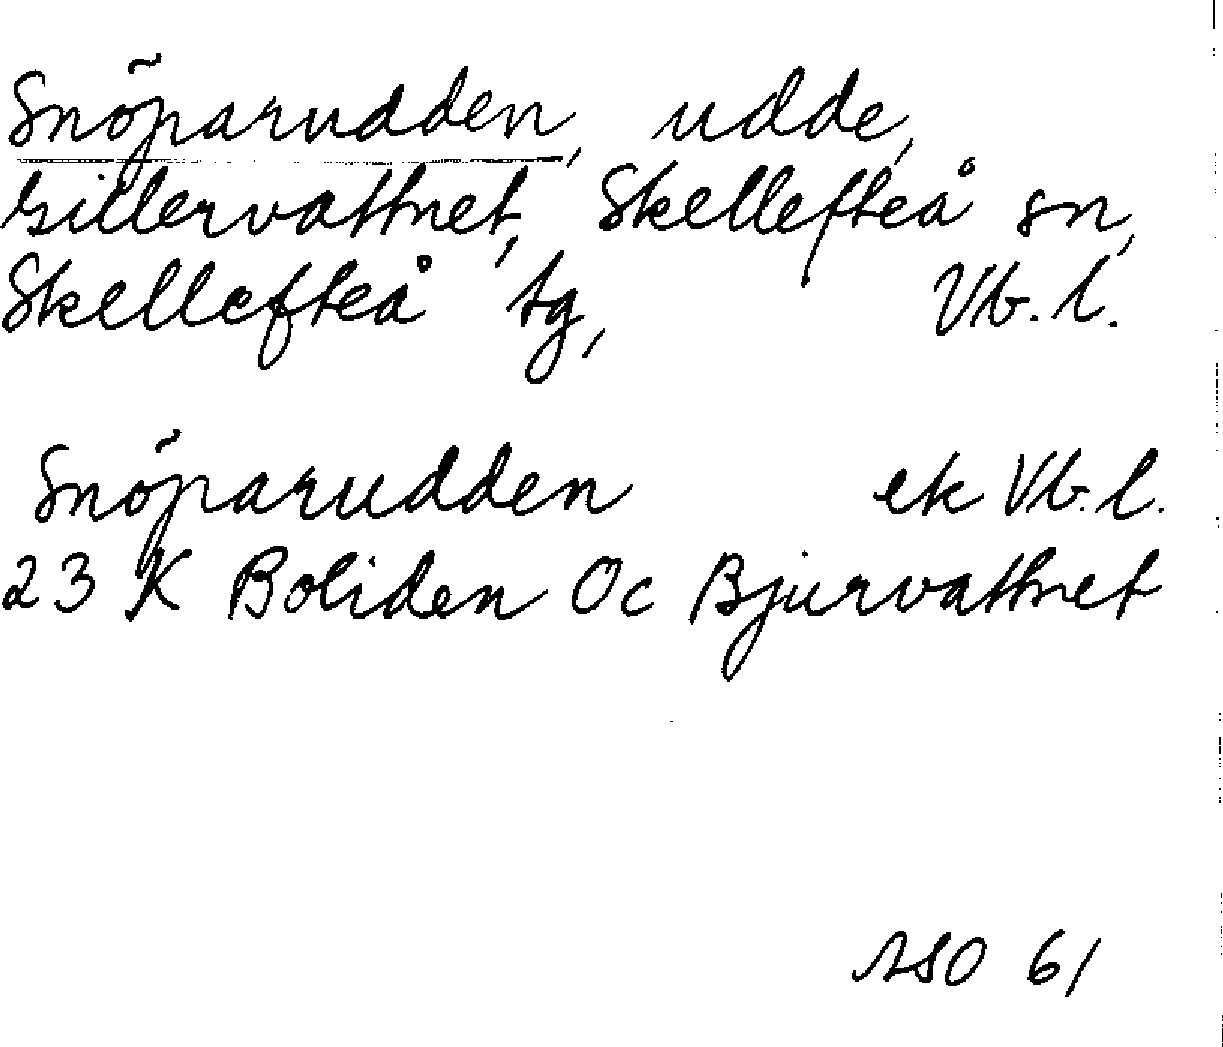 Snöparudden, udde,
Gillervattnet, Skellefteå sn,
Skellefteå tg, Vb. l.
Snöparudden ek Vb. l.
23 K Boliden Oc Bjurvattnet
ASO 61